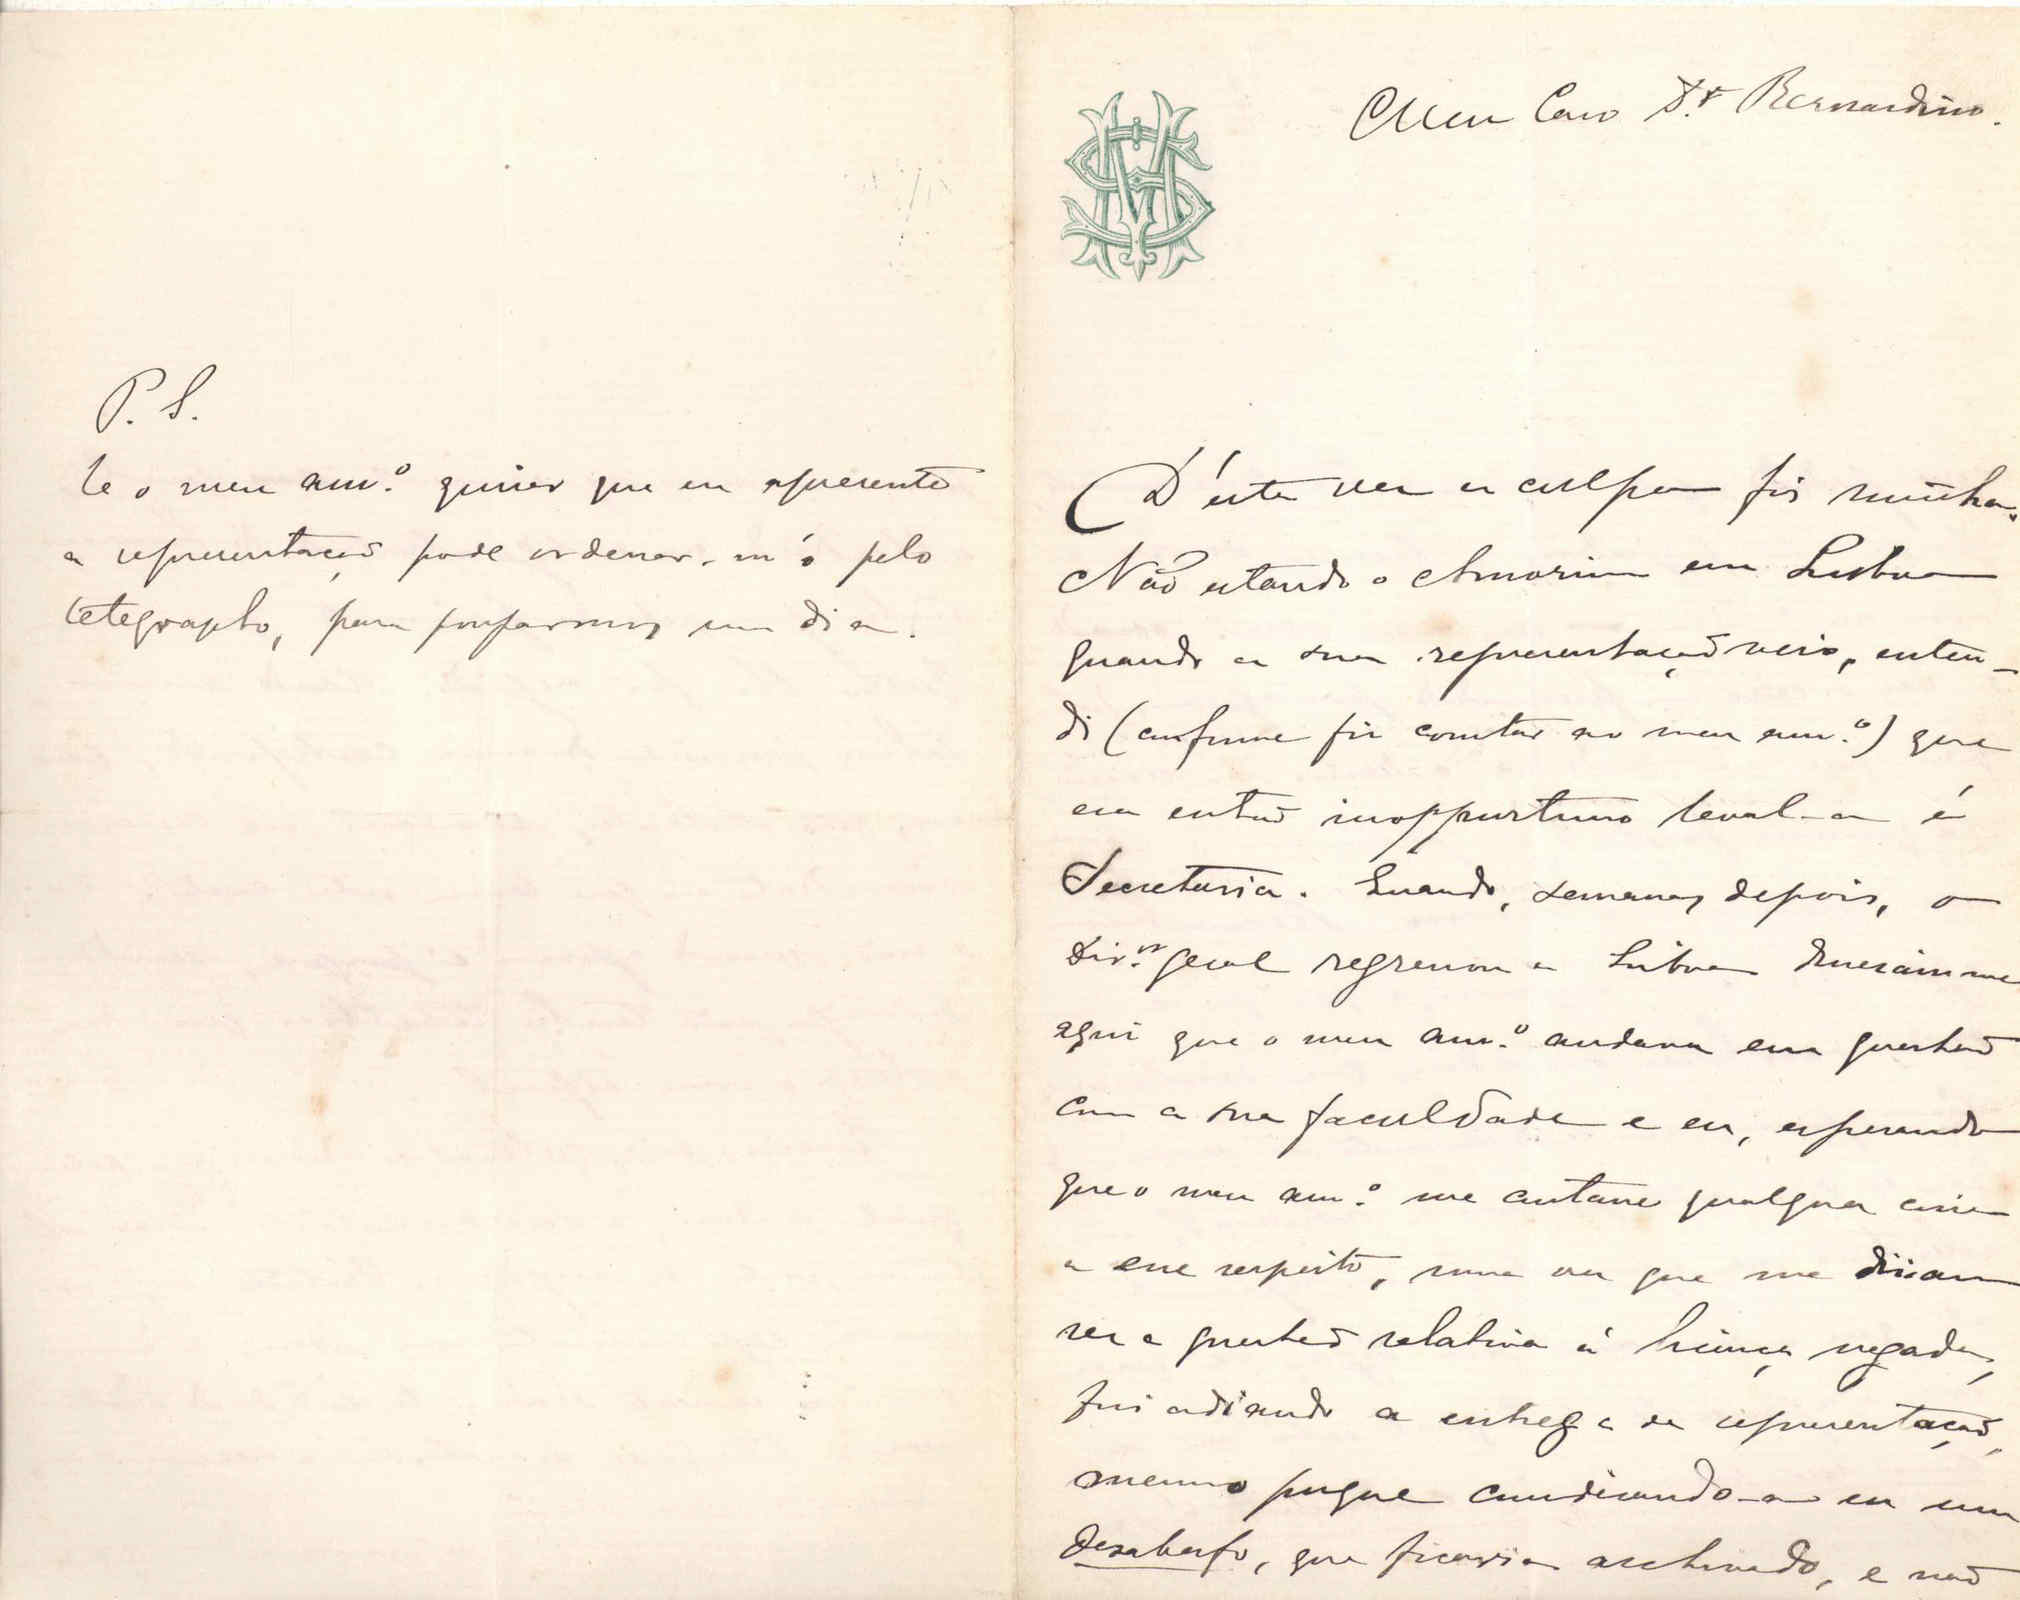 P. S.
Se o meu am.º quizer que eu apresente
a representação póde ordenar-m'o pelo
telegrapho, para pouparmos um dia.
Meu Caro Dr. Bernardino.
D'esta vez a culpa foi minha.
Não estando o Amorim em Lisboa
quando a sua representação veio, enten-
di (conforme fiz constar ao meu am.º) que
era então inoppurtuno leval-a á
Secretaria. Quando, semanas depois, o
Dir.or geral regressou a Lisboa disseram me
aqui que o meu am.º andava em questão
com a sua faculdade e eu, esperando
que o meu am.º me contasse qualquer coisa
a esse respeito, uma vez que me diziam
ser a questão relativa á licença negada,
fui adiando a entrega da representação,
mesmo porque considerando-a eu um
desabafo, que ficaria archivado, e não